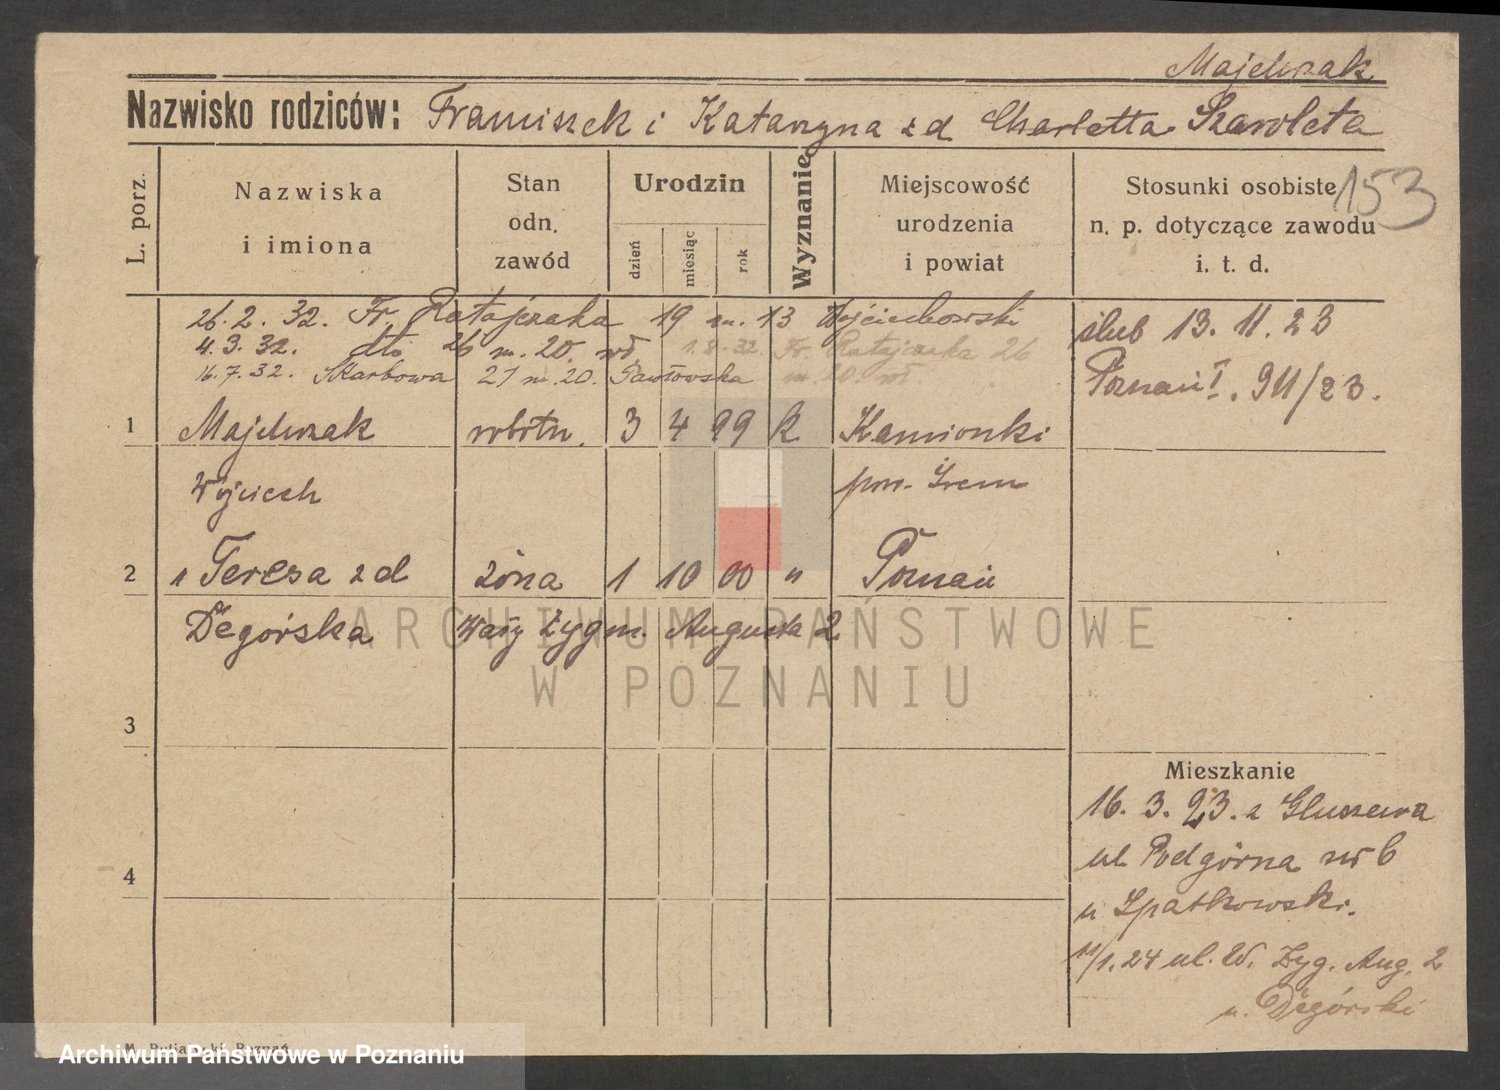 Majchrzak
Nazwisko rodziców: Franciszek i Katarzyna zd Charletta Szaroleta
L. porz.
Nazwiska i imiona
Stan odn. zawód
Urodzin
dzień
miesiąc
rok
Wyznanie
Miejscowość urodzenia i powiat
Stosunki osobiste n. p. dotyczące zawodu i. t. d.
153
26.2.32. Fr Ratajczaka 19 m. 13 Wojciechowski
4.3.32. dto 26 m. 20. wł. 1.8.32. Fr. Ratajczaka 26
16.7.32. Skarbowa 21 m. 20. Pawłowska m. 20. wł.
ślub 13.11.23
Poznań I. 911/23.
1 Majchrzak robotn. 3 4 99 k Kamionki
Wojciech pow. Śrem
2 Teresa zd żona 1 10 00 " Poznań
Degórska Wały Zygm. Augusta 2
3
4
Mieszkanie
16.3.23. z Gluszewa
ul Podgórna nr 6
u Szpatkowski.
11/1.24 ul. W. Zyg. Aug. 2
u. Degórski
ARCHIWUM PAŃSTWOWE
W POZNANIU
Archiwum Państwowe w Poznaniu